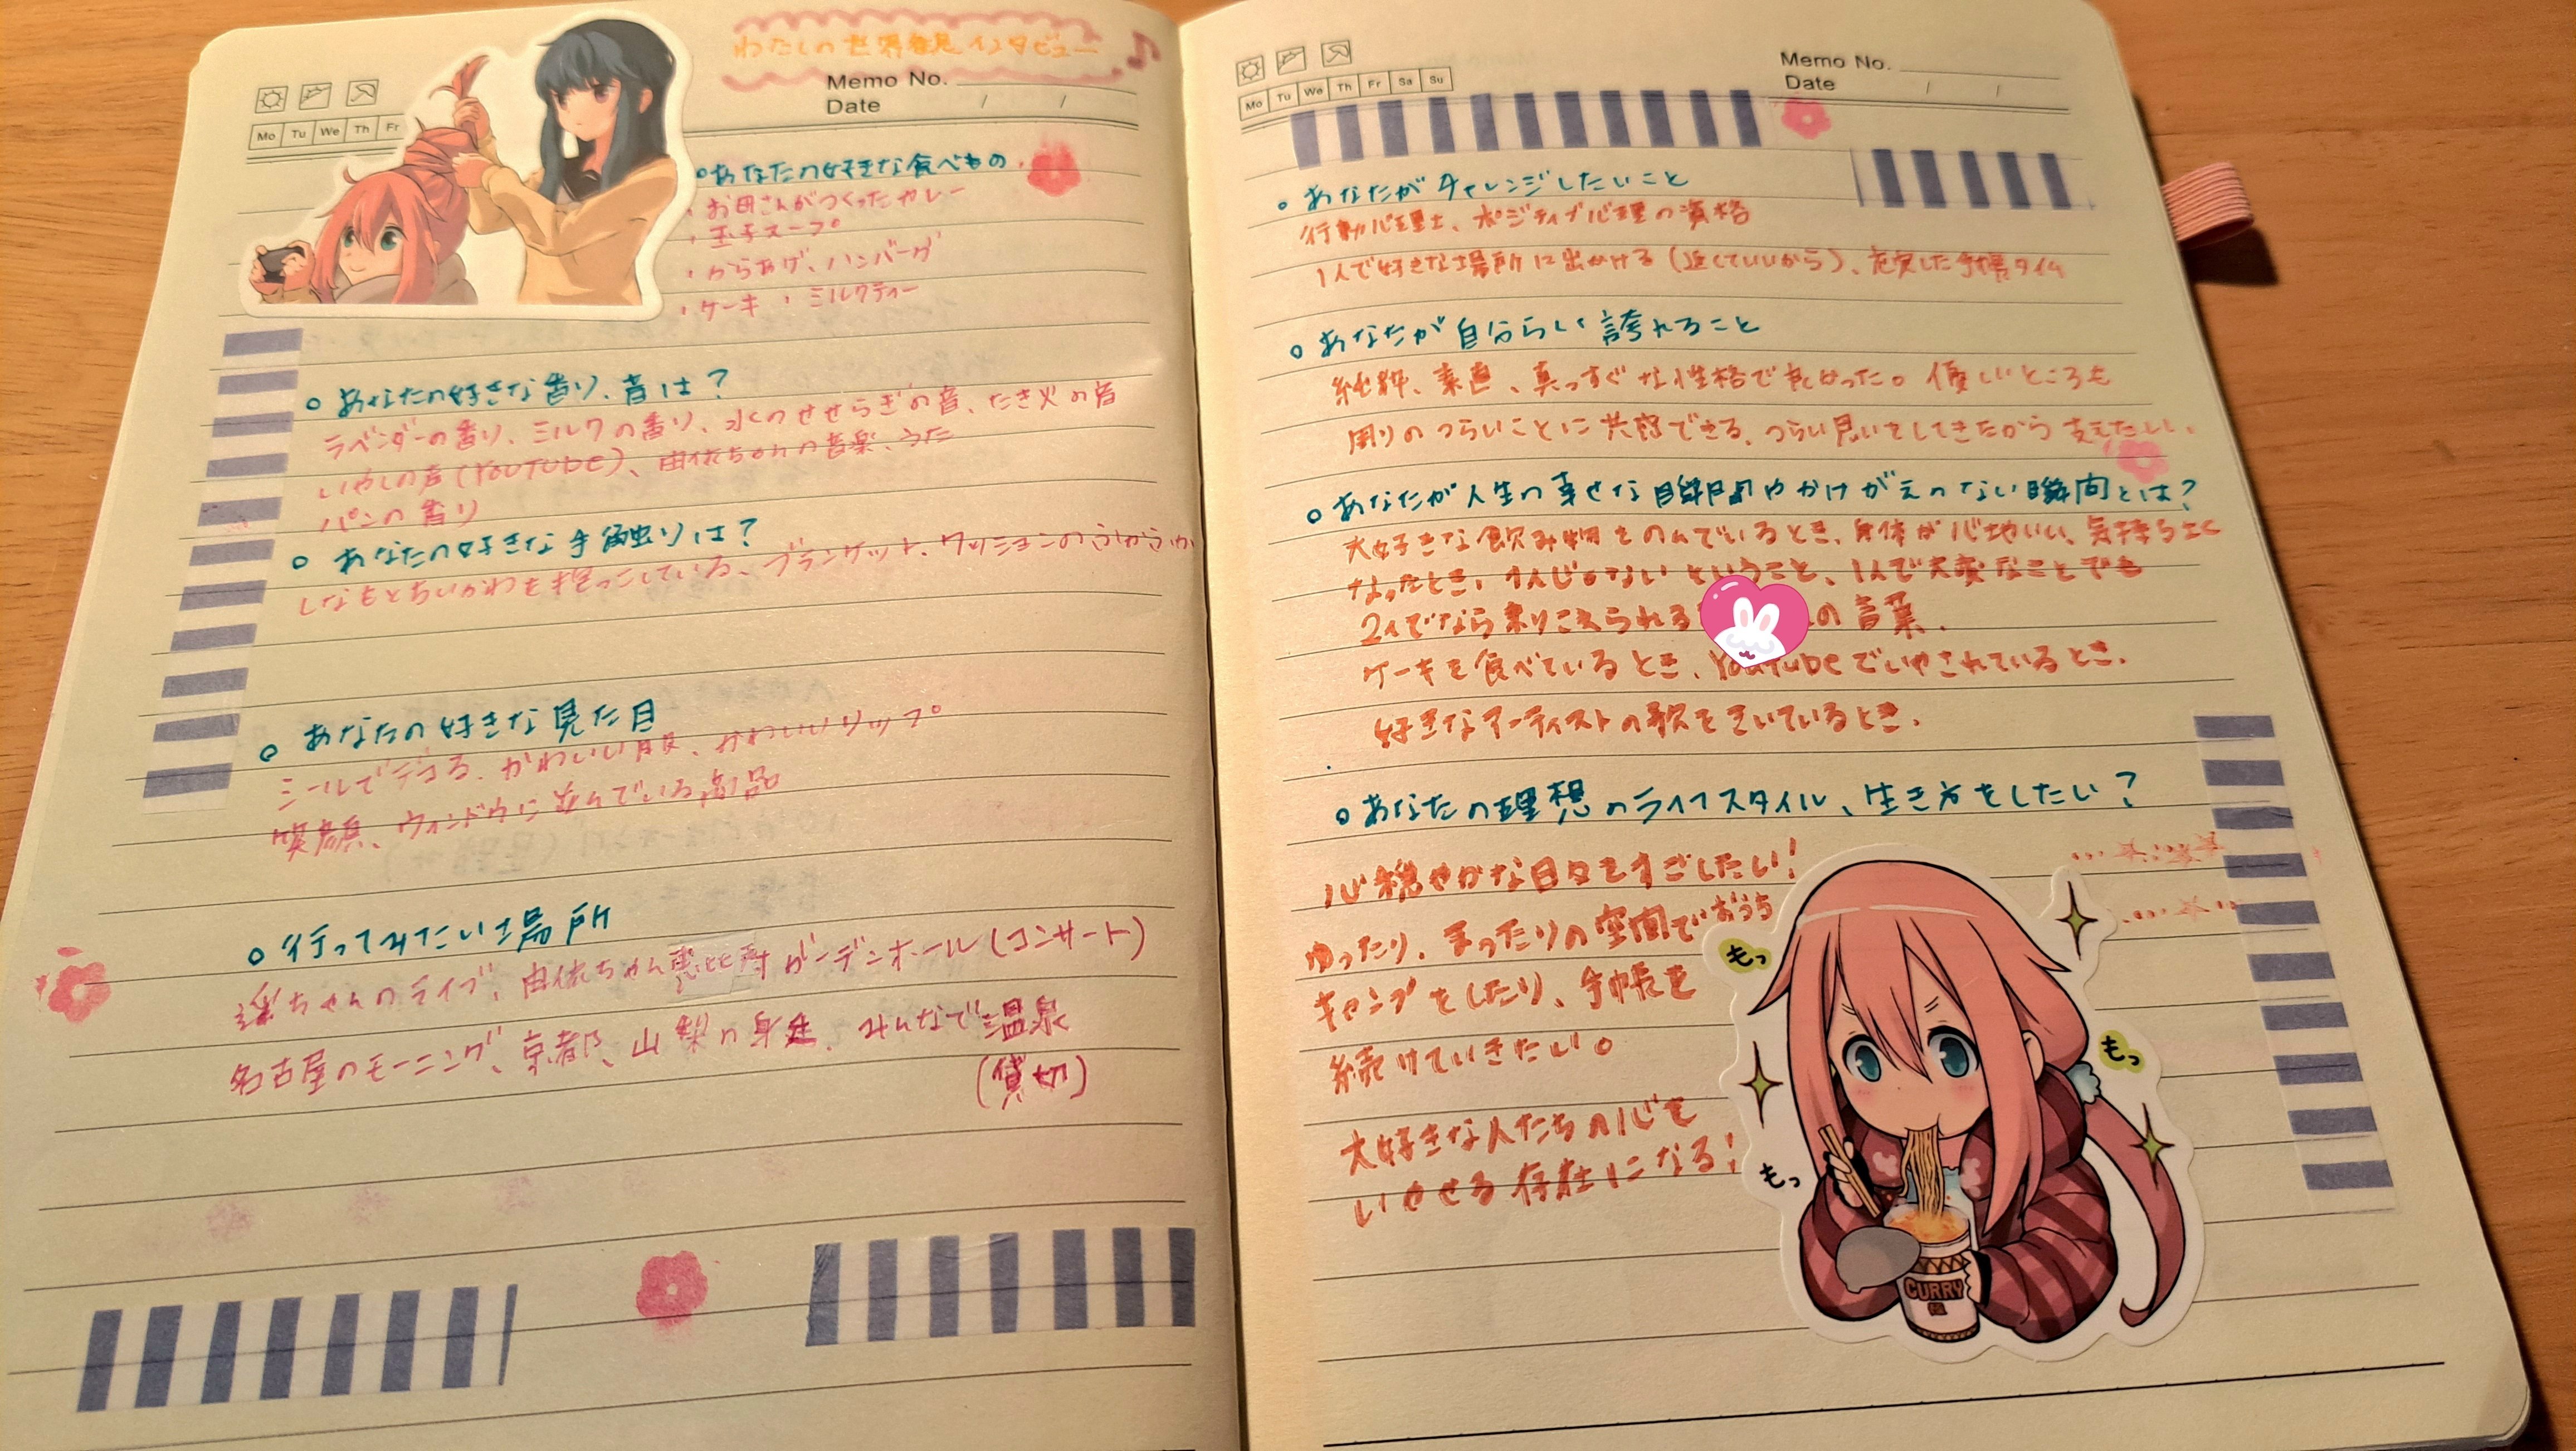 わたしの世界発見インタビュー♪
Memo No.
Date / /
Mo Tu We Th Fr
○あなたの好きな食べもの
・お母さんがつくったカレー
・玉子スープ
・からあげ、ハンバーグ
・ケーキ ・ミルクティー
○あなたの好きな香り、音は?
ラベンダーの香り、ミルクの香り、水のせせらぎの音、たき火の音
いやしの音(YouTube)、由依ちゃんの音楽、うた
パンの香り
○あなたの好きな手触りは?
しなもとちいかわを抱っこしている、ブランケット、クッションのふかふか
○あなたの好きな見た目
シールでデコる、かわいい服、かわいいリップ
笑顔、ウィンドウに並んでいる商品
○行ってみたい場所
遥ちゃんのライブ、由依ちゃん恵比寿ガーデンホール(コンサート)
名古屋のモーニング、京都、山梨の身延、みんなで温泉
(貸切)
Memo No.
Date / /
Mo Tu We Th Fr Sa Su
○あなたがチャレンジしたいこと
行動心理士、ポジティブ心理の資格
1人で好きな場所に出かける(近くていいから)、充実した手帳タイム
○あなたが自分らしい誇れること
純粋、素直、真っすぐな性格で良かった。優しいところも
周りのつらいことに共感できる、つらい思いをしてきたから支えたい、
○あなたが人生の幸せな瞬間やかけがえのない瞬間とは?
大好きな飲み物をのんでいるとき、身体が心地いい、気持ちよく
なったとき、1人じゃないということ、1人で大変なことでも
2人でなら乗りこえられる の言葉、
ケーキを食べているとき、YouTubeでいやされているとき、
好きなアーティストの歌をきいているとき、
○あなたの理想のライフスタイル、生き方をしたい?
心穏やかな日々をすごしたい!
ゆったり、まったりの空間でおうち
キャンプをしたり、手帳を
続けていきたい。
大好きな人たちの心を
いやせる存在になる!
もっ
もっ
もっ
CURRY